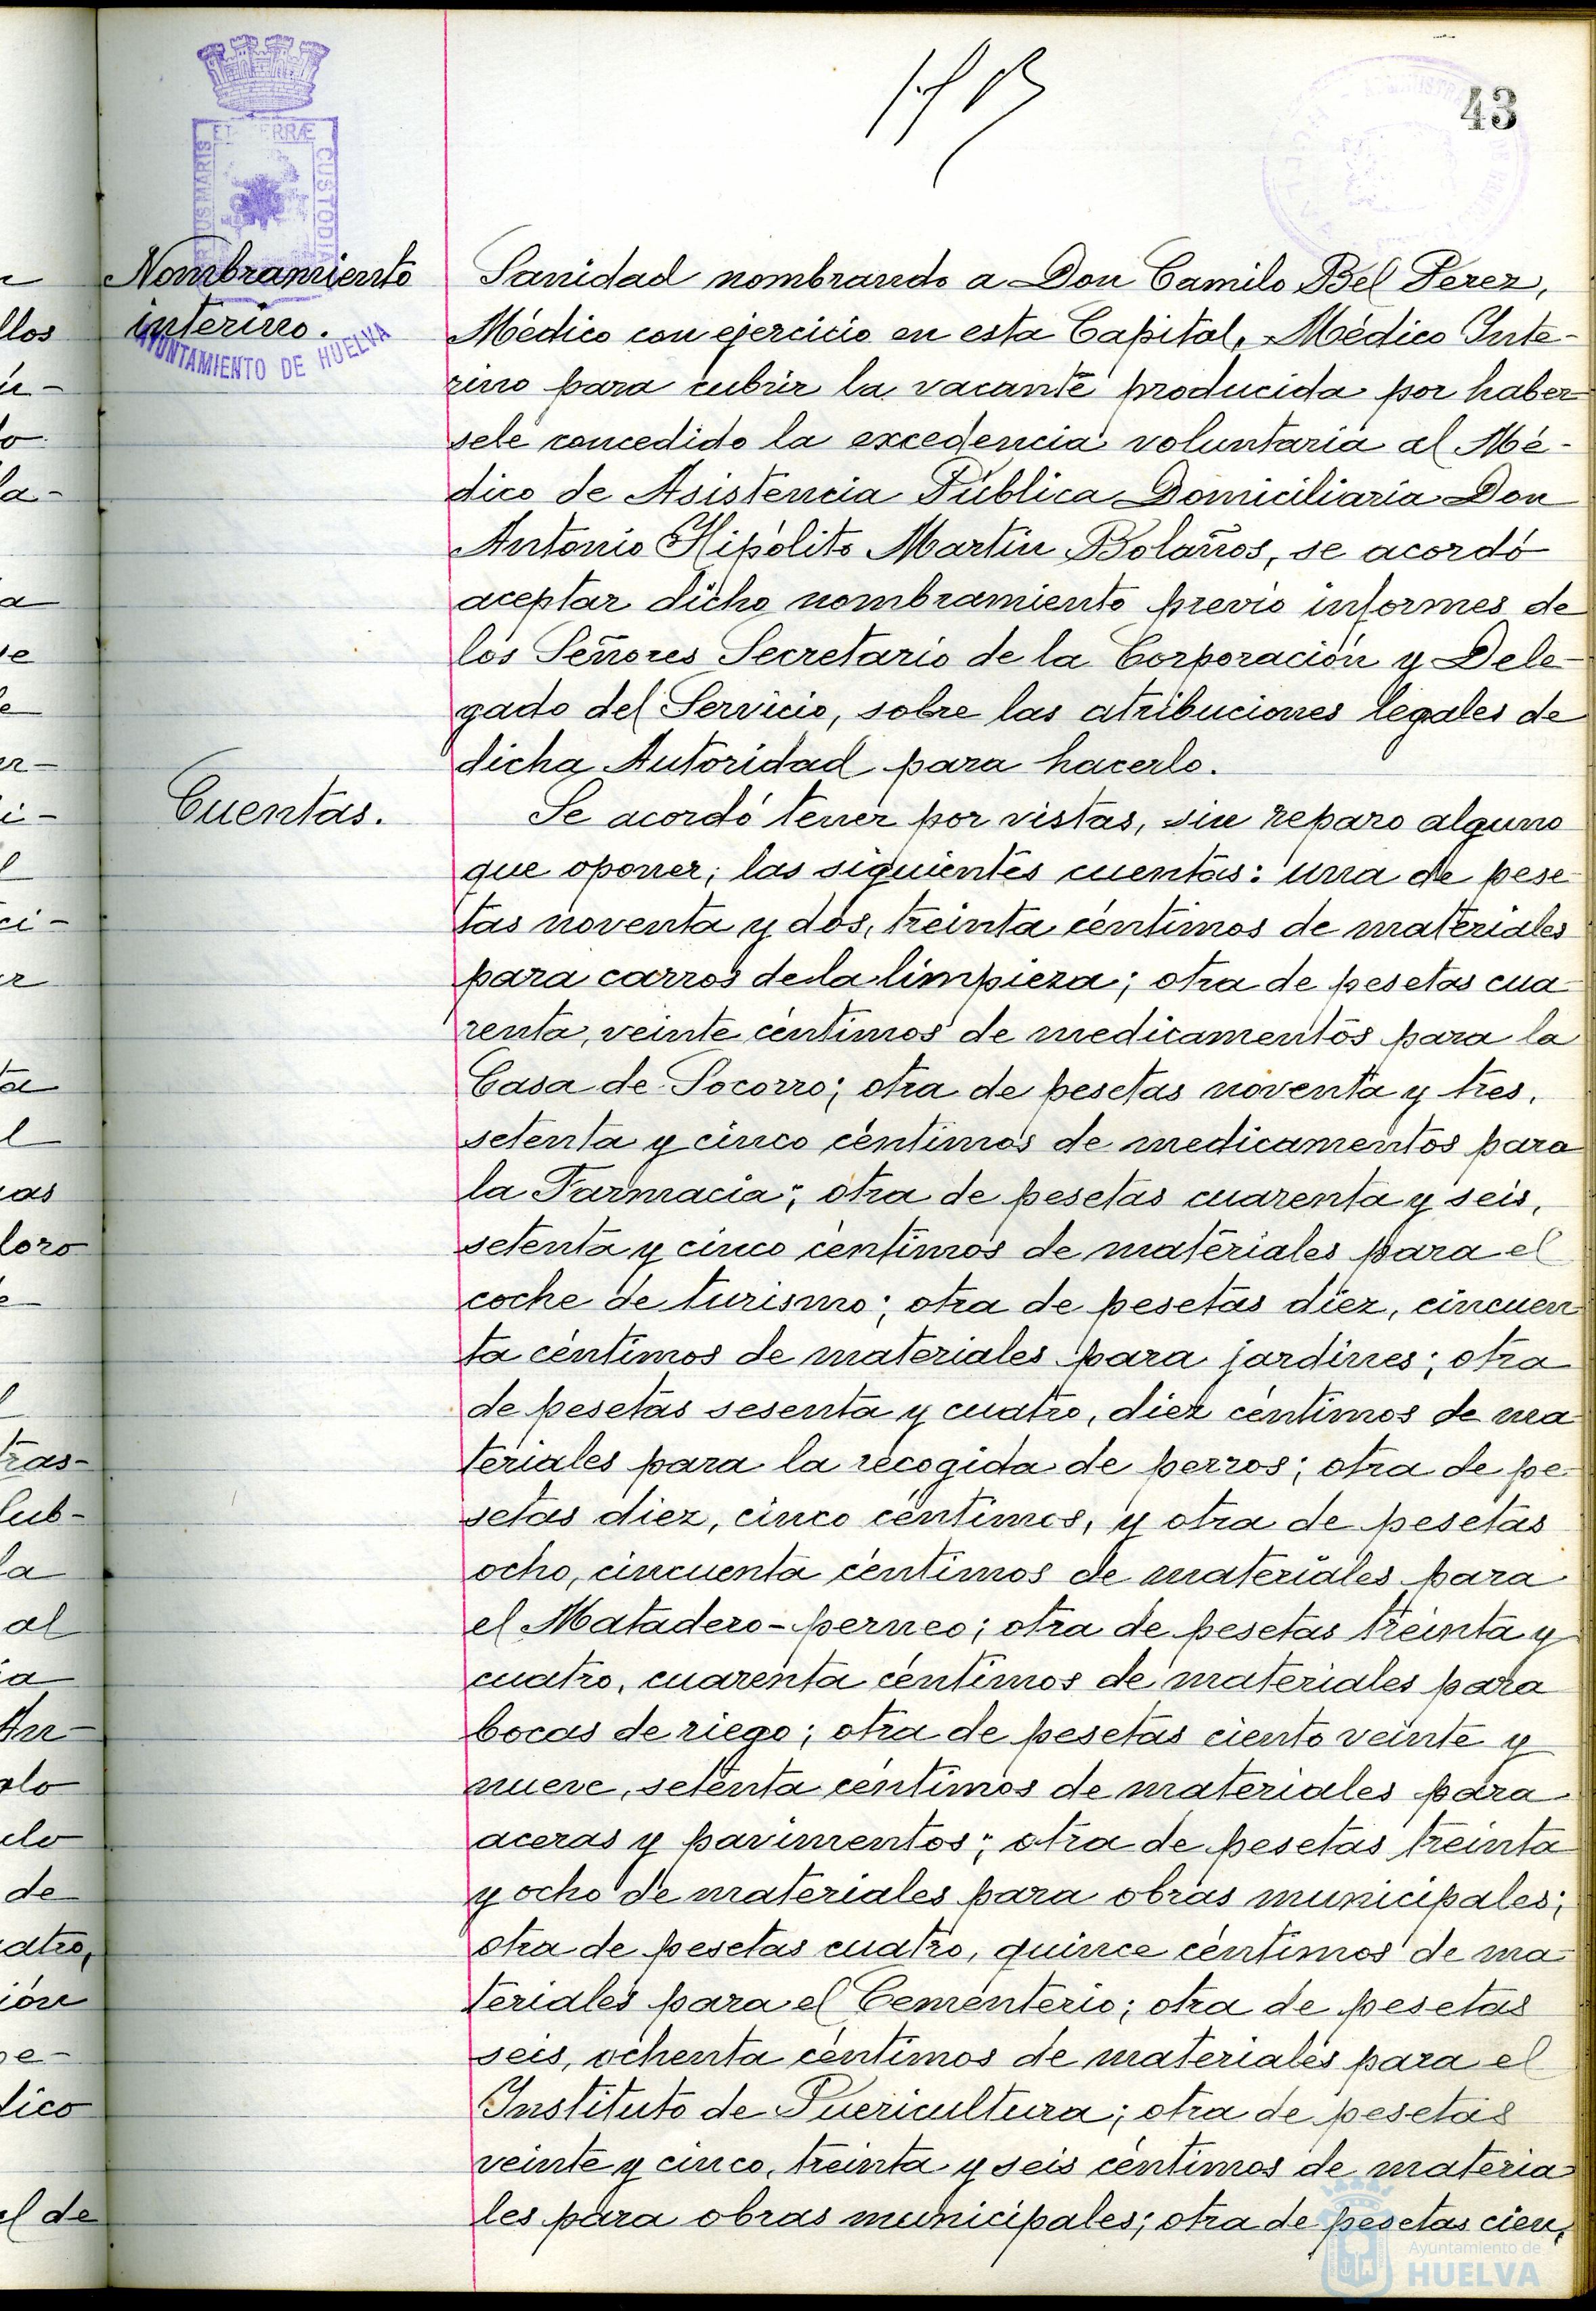 43
ET TERRÆ
CUSTODIA
US MARIS
AYUNTAMIENTO DE HUELVA
Nombramiento
interino.
Sanidad nombrando a Don Camilo Bel Perez,
Médico con ejercicio en esta Capital, Médico Inte-
rino para cubrir la vacante producida por haber
sele concedido la excedencia voluntaria al Mé-
dico de Asistencia Pública Domiciliaria Don
Antonio Hipólito Martin Bolaños, se acordó
aceptar dicho nombramiento previo informes de
los Señores Secretario de la Corporación y Dele-
gado del Servicio, sobre las atribuciones legales de
dicha Autoridad para hacerlo.
Cuentas.
Se acordó tener por vistas, sin reparo alguno
que oponer, las siguientes cuentas: una de pese
tas noventa y dos, treinta céntimos de materiales
para carros de la limpieza; otra de pesetas cua
renta, veinte céntimos de medicamentos para la
Casa de Socorro; otra de pesetas noventa y tres,
setenta y cinco céntimos de medicamentos para
la Farmacia; otra de pesetas cuarenta y seis,
setenta y cinco céntimos de materiales para el
coche de turismo; otra de pesetas diez, cincuen
ta céntimos de materiales para jardines; otra
de pesetas sesenta y cuatro, diez céntimos de ma
teriales para la recogida de perros; otra de pe
setas diez, cinco céntimos, y otra de pesetas
ocho, cincuenta céntimos de materiales para
el Matadero-perneo; otra de pesetas treinta y
cuatro, cuarenta céntimos de materiales para
bocas de riego; otra de pesetas ciento veinte y
nueve, setenta céntimos de materiales para
aceras y pavimentos; otra de pesetas treinta
y ocho de materiales para obras municipales;
otra de pesetas cuatro, quince céntimos de ma
teriales para el Cementerio; otra de pesetas
seis, ochenta céntimos de materiales para el
Instituto de Puericultura; otra de pesetas
veinte y cinco, treinta y seis céntimos de materia
les para obras municipales; otra de pesetas cien,
Ayuntamiento de
HUELVA